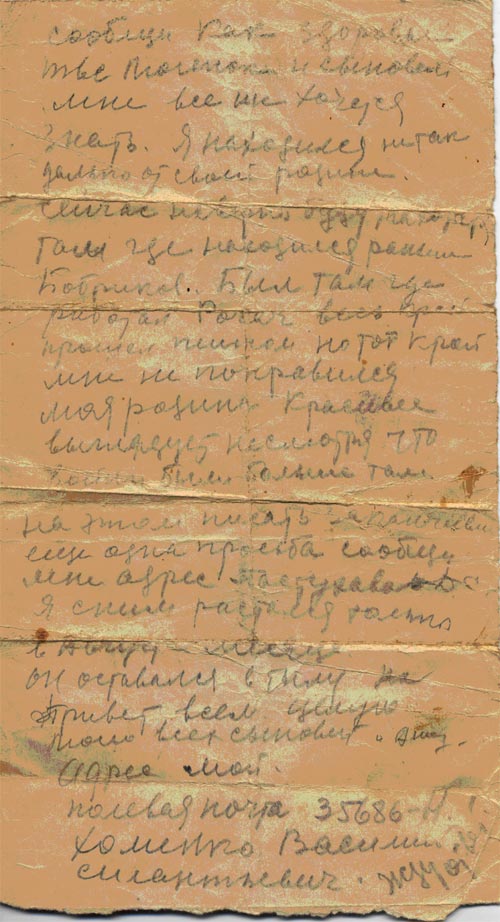 сообщи как здоровье
твое и сыновей
мне все же хочется
знать. Я находился не так
далеко от своей родины.
сейчас наверно буду
там где находился раньше
Бобриков. Был там где
работал весь край
прошел пешком но тот край
мне не понравился
моя родина красивее
выглядует несмотря что
войны были больше там
на этом писать заканчиваю
еще одна просьба сообщи
мне адрес
я с ним растался только
в месяце
он оставался в тылу
Привет всем целую
всех сыновей.
Адрес мой.
полевая почта 35686-
Хоменко Василий
жду